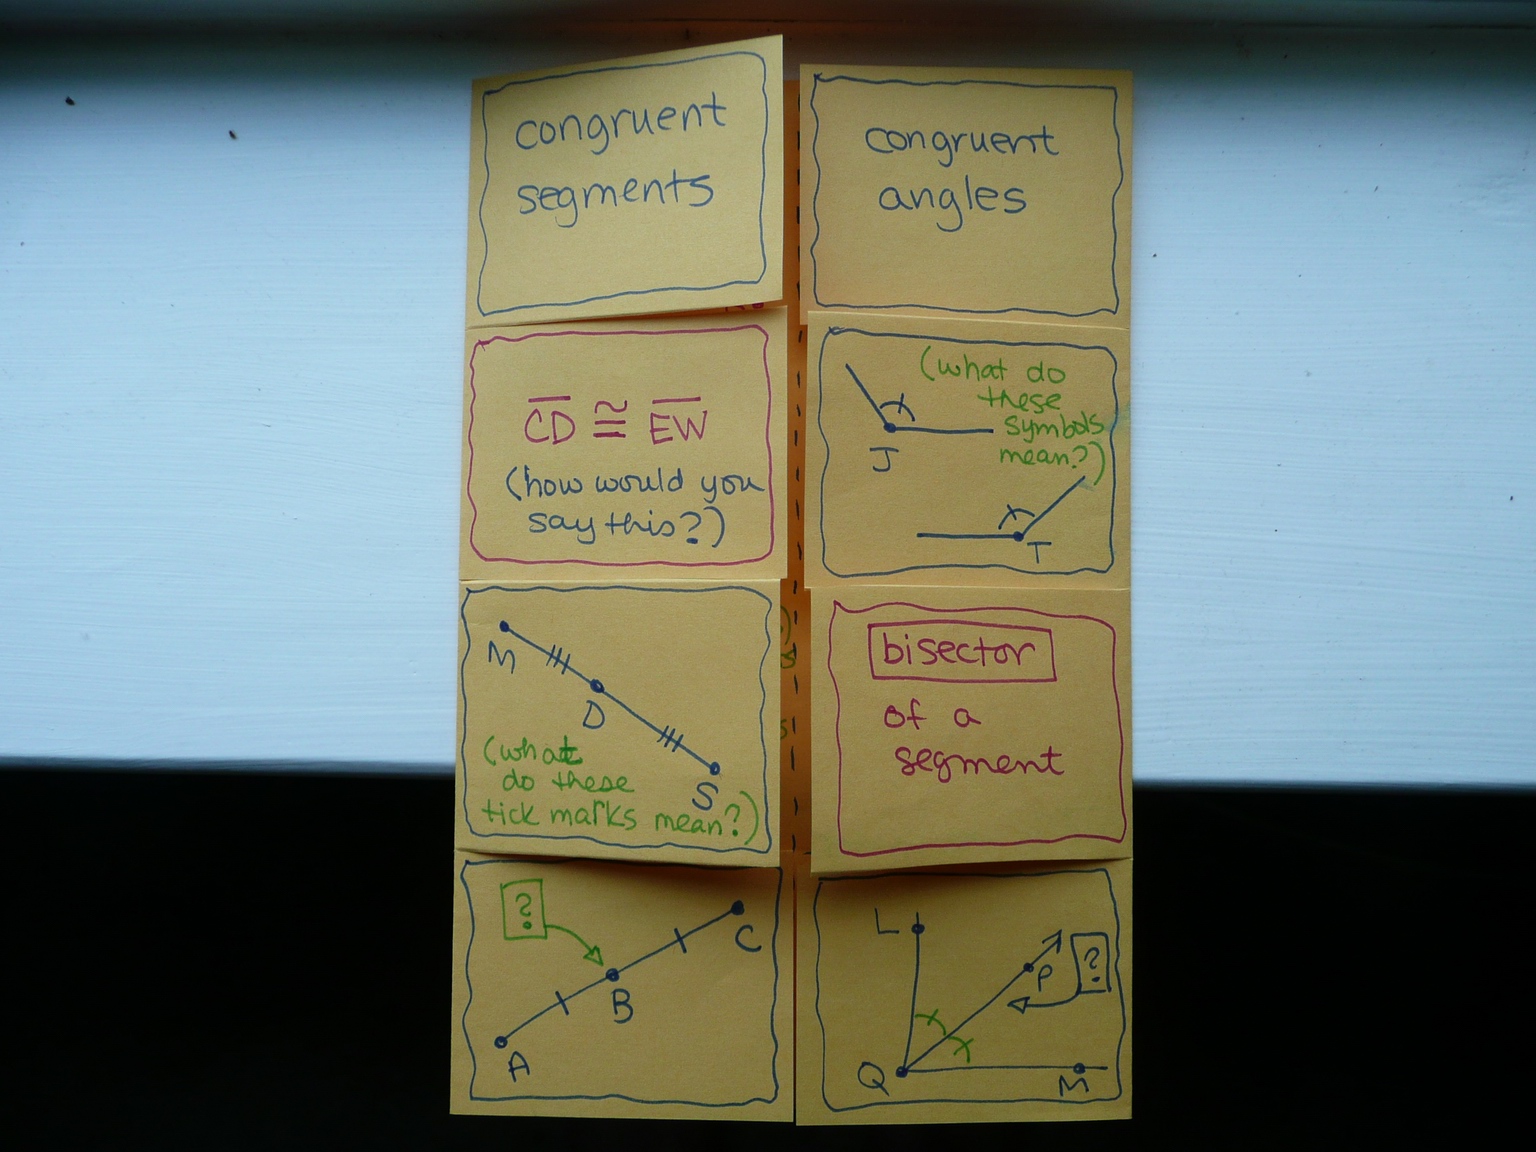 congruent
segments
congruent
angles
CD ≅ EW
(how would you
say this?)
(what do
these
symbols
mean?)
J
T
M
D
S
(what
do these
tick marks mean?)
bisector
of a
segment
?
C
B
A
L
P
?
Q
M